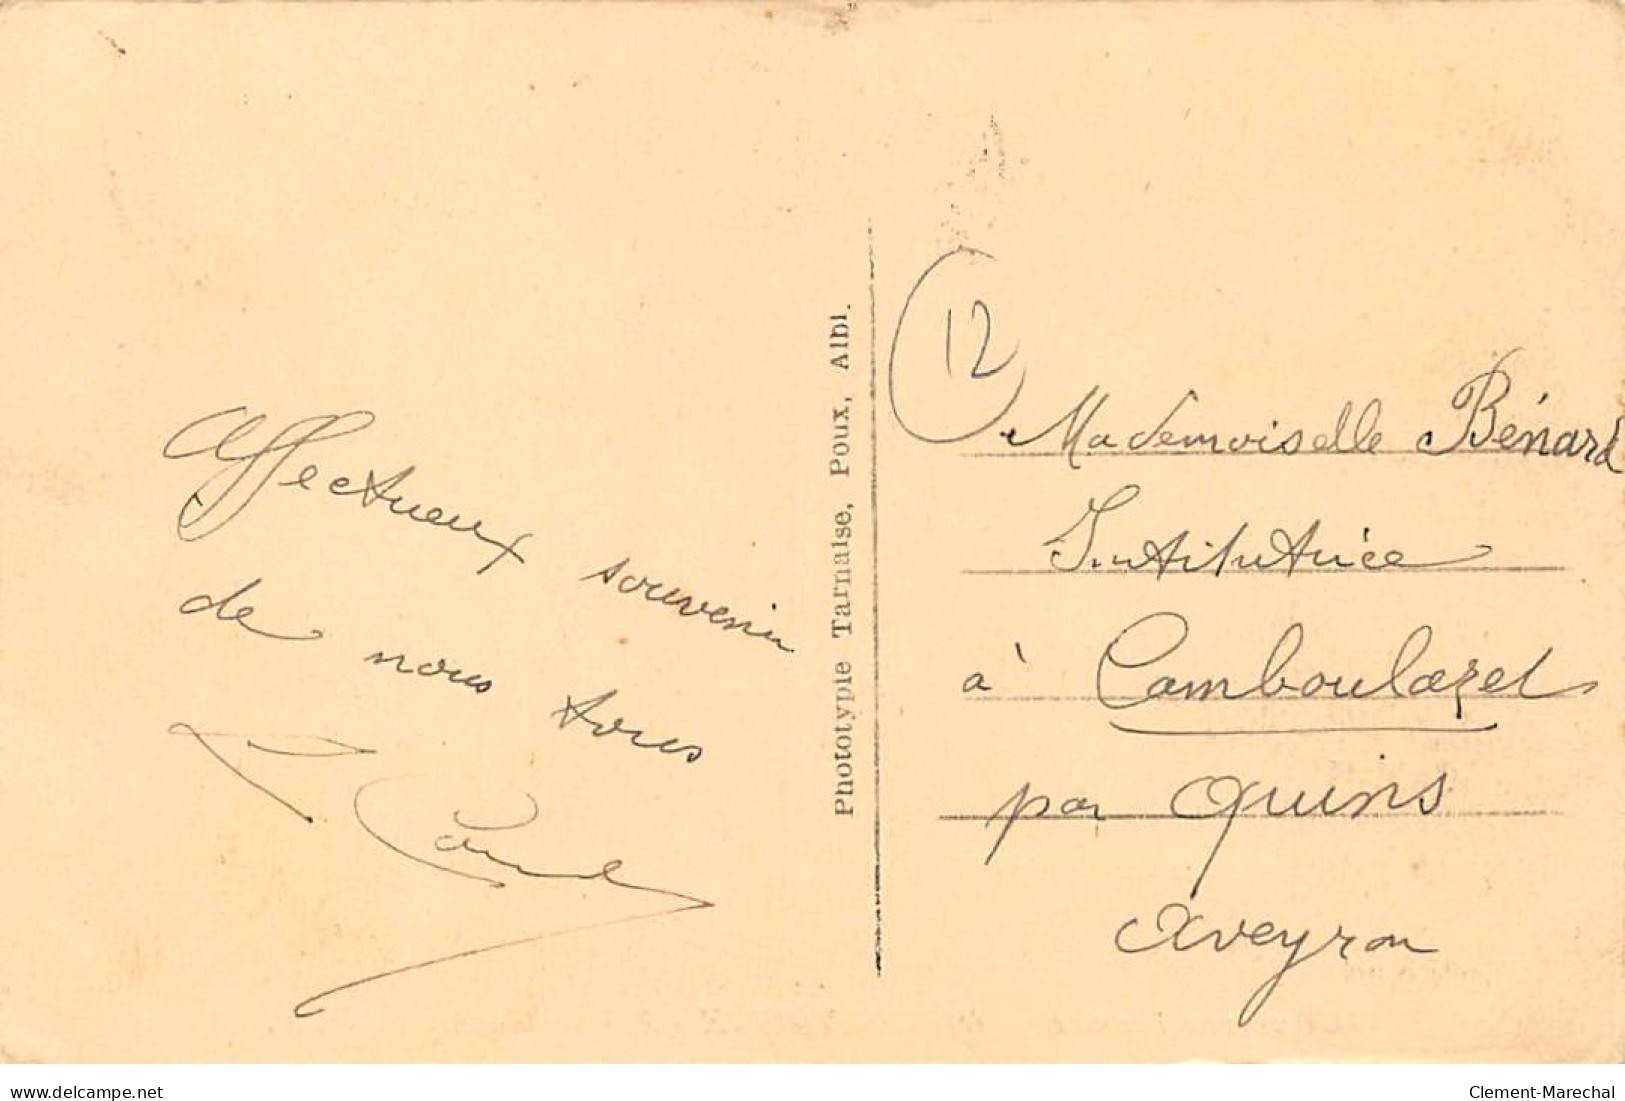 Affectueux souvenir
de nous tous
Phototypie Tarnaise, Poux, Albi.
12
Mademoiselle Bénard
Institutrice
à Camboulazet
par Quins
Aveyron
delcampe.net
Clement-Marechal